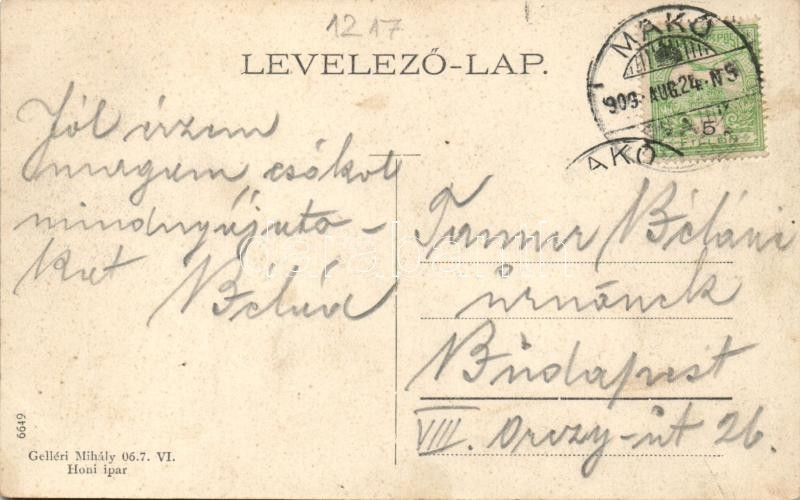 1217
LEVELEZŐ-LAP.
MAKÓ
909. AUG. 24. N 9
5
AKÓ
Jól érzem
magam csókol
mindnyájuto-
kat Bélád
Tanner Béláné
úrnőnek
Budapest
VIII. Orczy-út 26.
6649
Gelléri Mihály 06.7. VI.
Honi ipar
darabanth